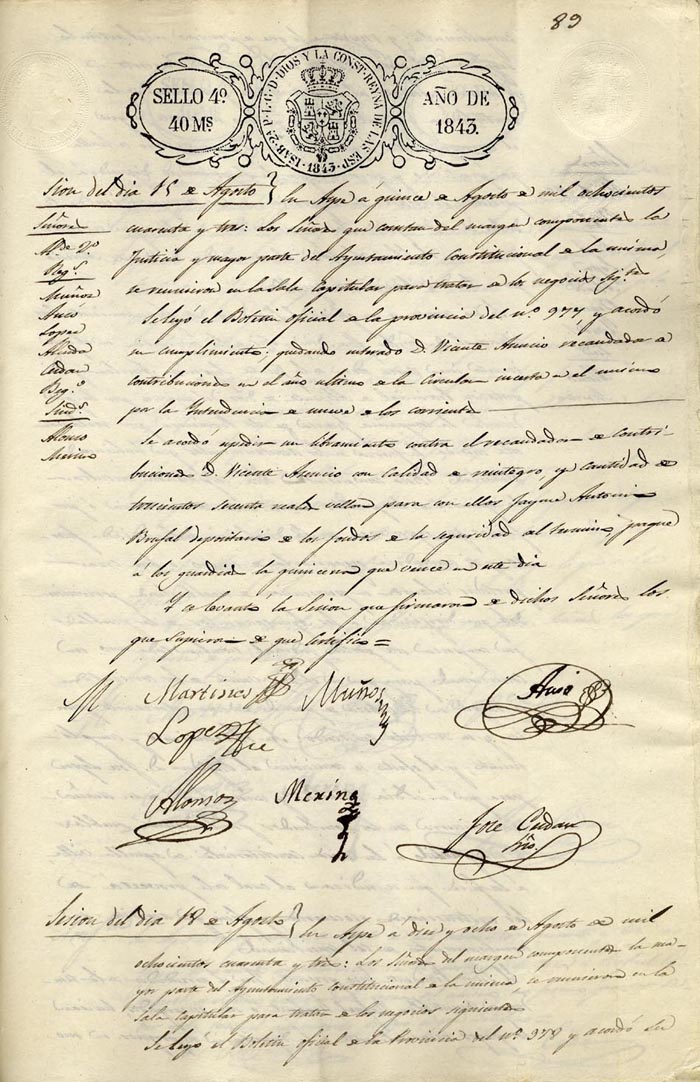 89
SELLO 4º
40 Ms
ISAB. 2ª P. L. G. D. DIOS Y LA CONST. REYNA DE LAS ESP.
1843.
AÑO DE
1843.
Sion del dia 15 de Agosto
Señores
Muñoz
Auso
Lopez
Alenda
Cedan
Sinds.
Alonso
Merino
En Aspe á quince de Agosto de mil ochocientos
cuarenta y tres: Los Señores que constan del margen componentes la
Justicia y mayor parte del Ayuntamiento Constitucional de la misma,
se reunieron en la Sala Capitular para tratar de los negocios sigtes
Se leyó el Boletin oficial de la provincia del nº 977 y acordó
su cumplimiento; quedando enterado D. Vicente Asencio recaudador de
contribuciones en el año ultimo de la Circular inserta en el mismo
por la Intendencia de nueve de los corrientes
Se acordó expedir un libramiento contra el recaudador de contri-
buciones D. Vicente Asencio con calidad de reintegro, y cantidad de
trescientos sesenta reales vellon para con ellos Jayme Antonio
Brufal depositario de los fondos de la seguridad del termino, pague
á los guardias la quincena que vence en este dia
Y se levantó la Sesion que firmaron de dichos Señores los
que supieron de que certifico =
M Martines
Muños
Auso
Lopez
Alonso
Merino
Jose Cedan
Srio.
Sesion del dia 18 de Agosto
En Aspe á diez y ocho de Agosto de mil
ochocientos cuarenta y tres: Los Señores del margen componentes la ma-
yor parte del Ayuntamiento Constitucional de la misma se reunieron en la
Sala capitular para tratar de los negocios siguientes
Se leyó el Boletin oficial de la Provincia del nº 978 y acordó su